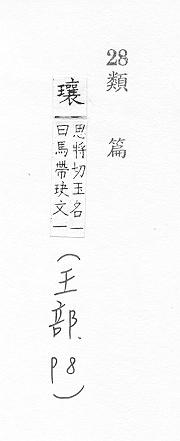 28類篇
瓖
思將切玉名一
曰馬帶玦文一
(王部、P8)